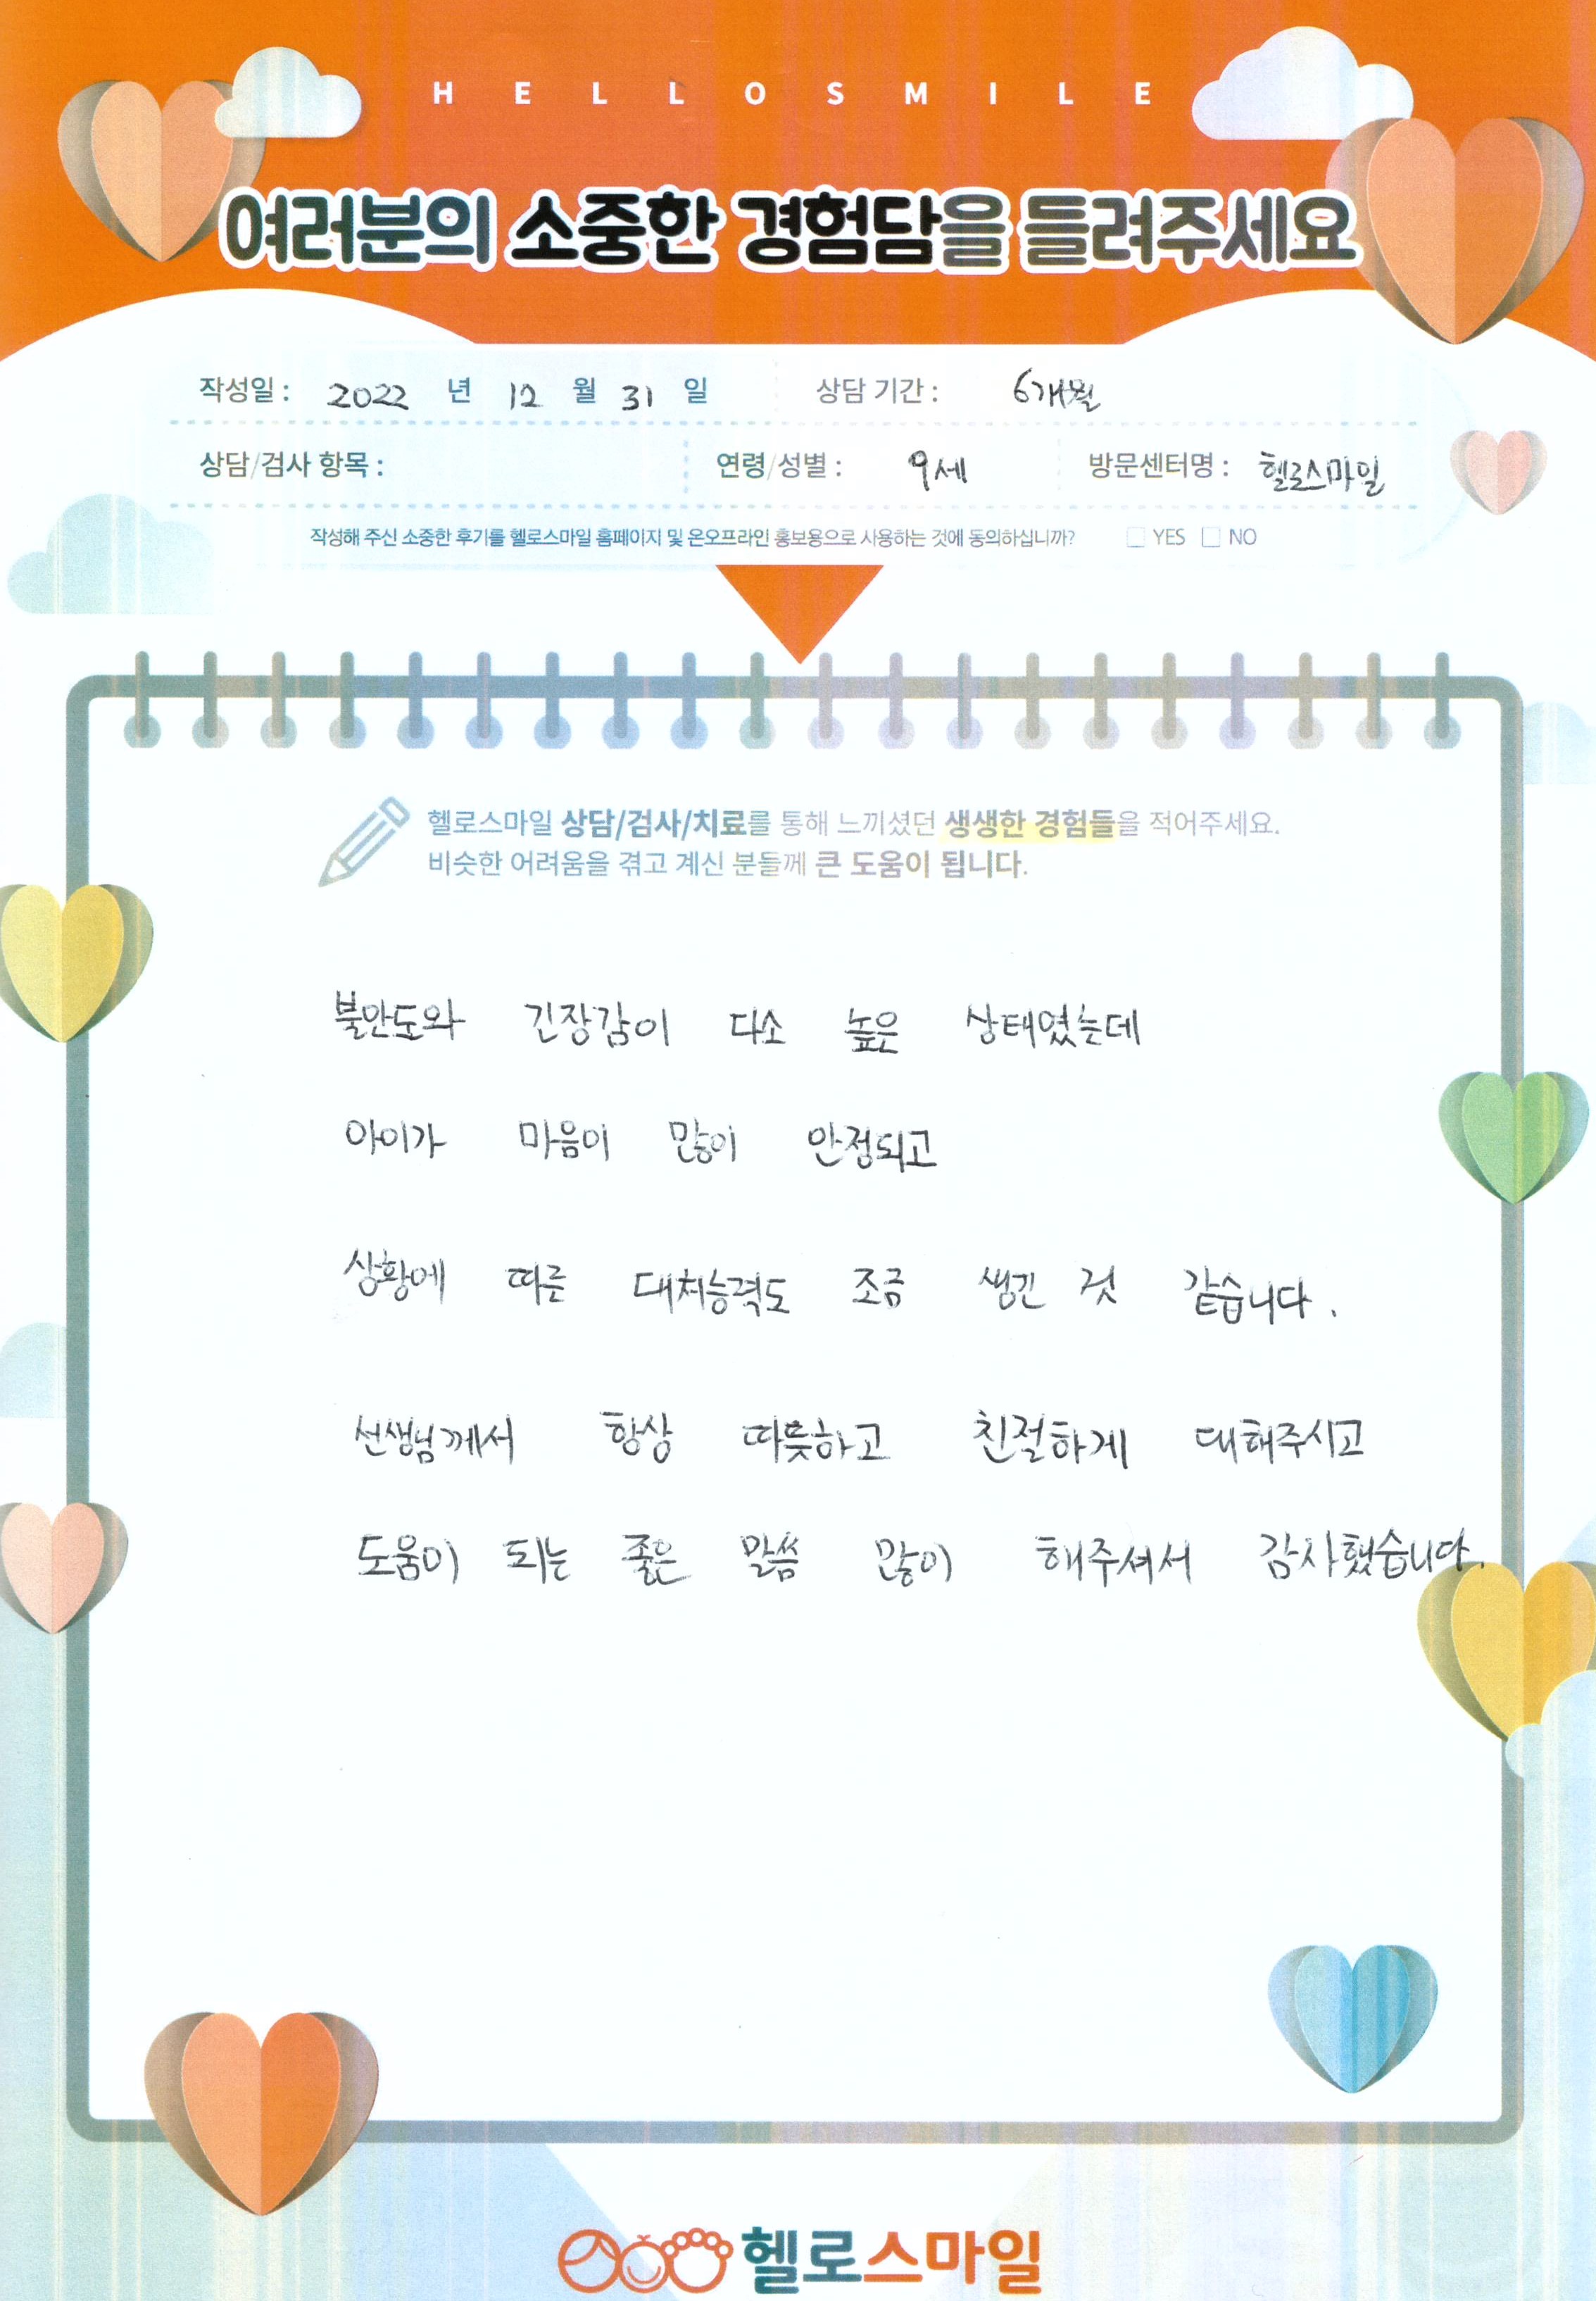 HELLOSMILE
여러분의 소중한 경험담을 들려주세요
작성일 : 2022 년 12 월 31 일 상담 기간 : 6개월
상담/검사 항목 : 연령/성별 : 9세 방문센터명 : 헬로스마일
작성해 주신 소중한 후기를 헬로스마일 홈페이지 및 온오프라인 홍보용으로 사용하는 것에 동의하십니까? YES NO
헬로스마일 상담/검사/치료를 통해 느끼셨던 생생한 경험들을 적어주세요.
비슷한 어려움을 겪고 계신 분들께 큰 도움이 됩니다.
불안도와 긴장감이 다소 높은 상태였는데
아이가 마음이 많이 안정되고
상황에 따른 대처능력도 조금 생긴 것 같습니다.
선생님께서 항상 따뜻하고 친절하게 대해주시고
도움이 되는 좋은 말씀 많이 해주셔서 감사했습니다.
헬로스마일